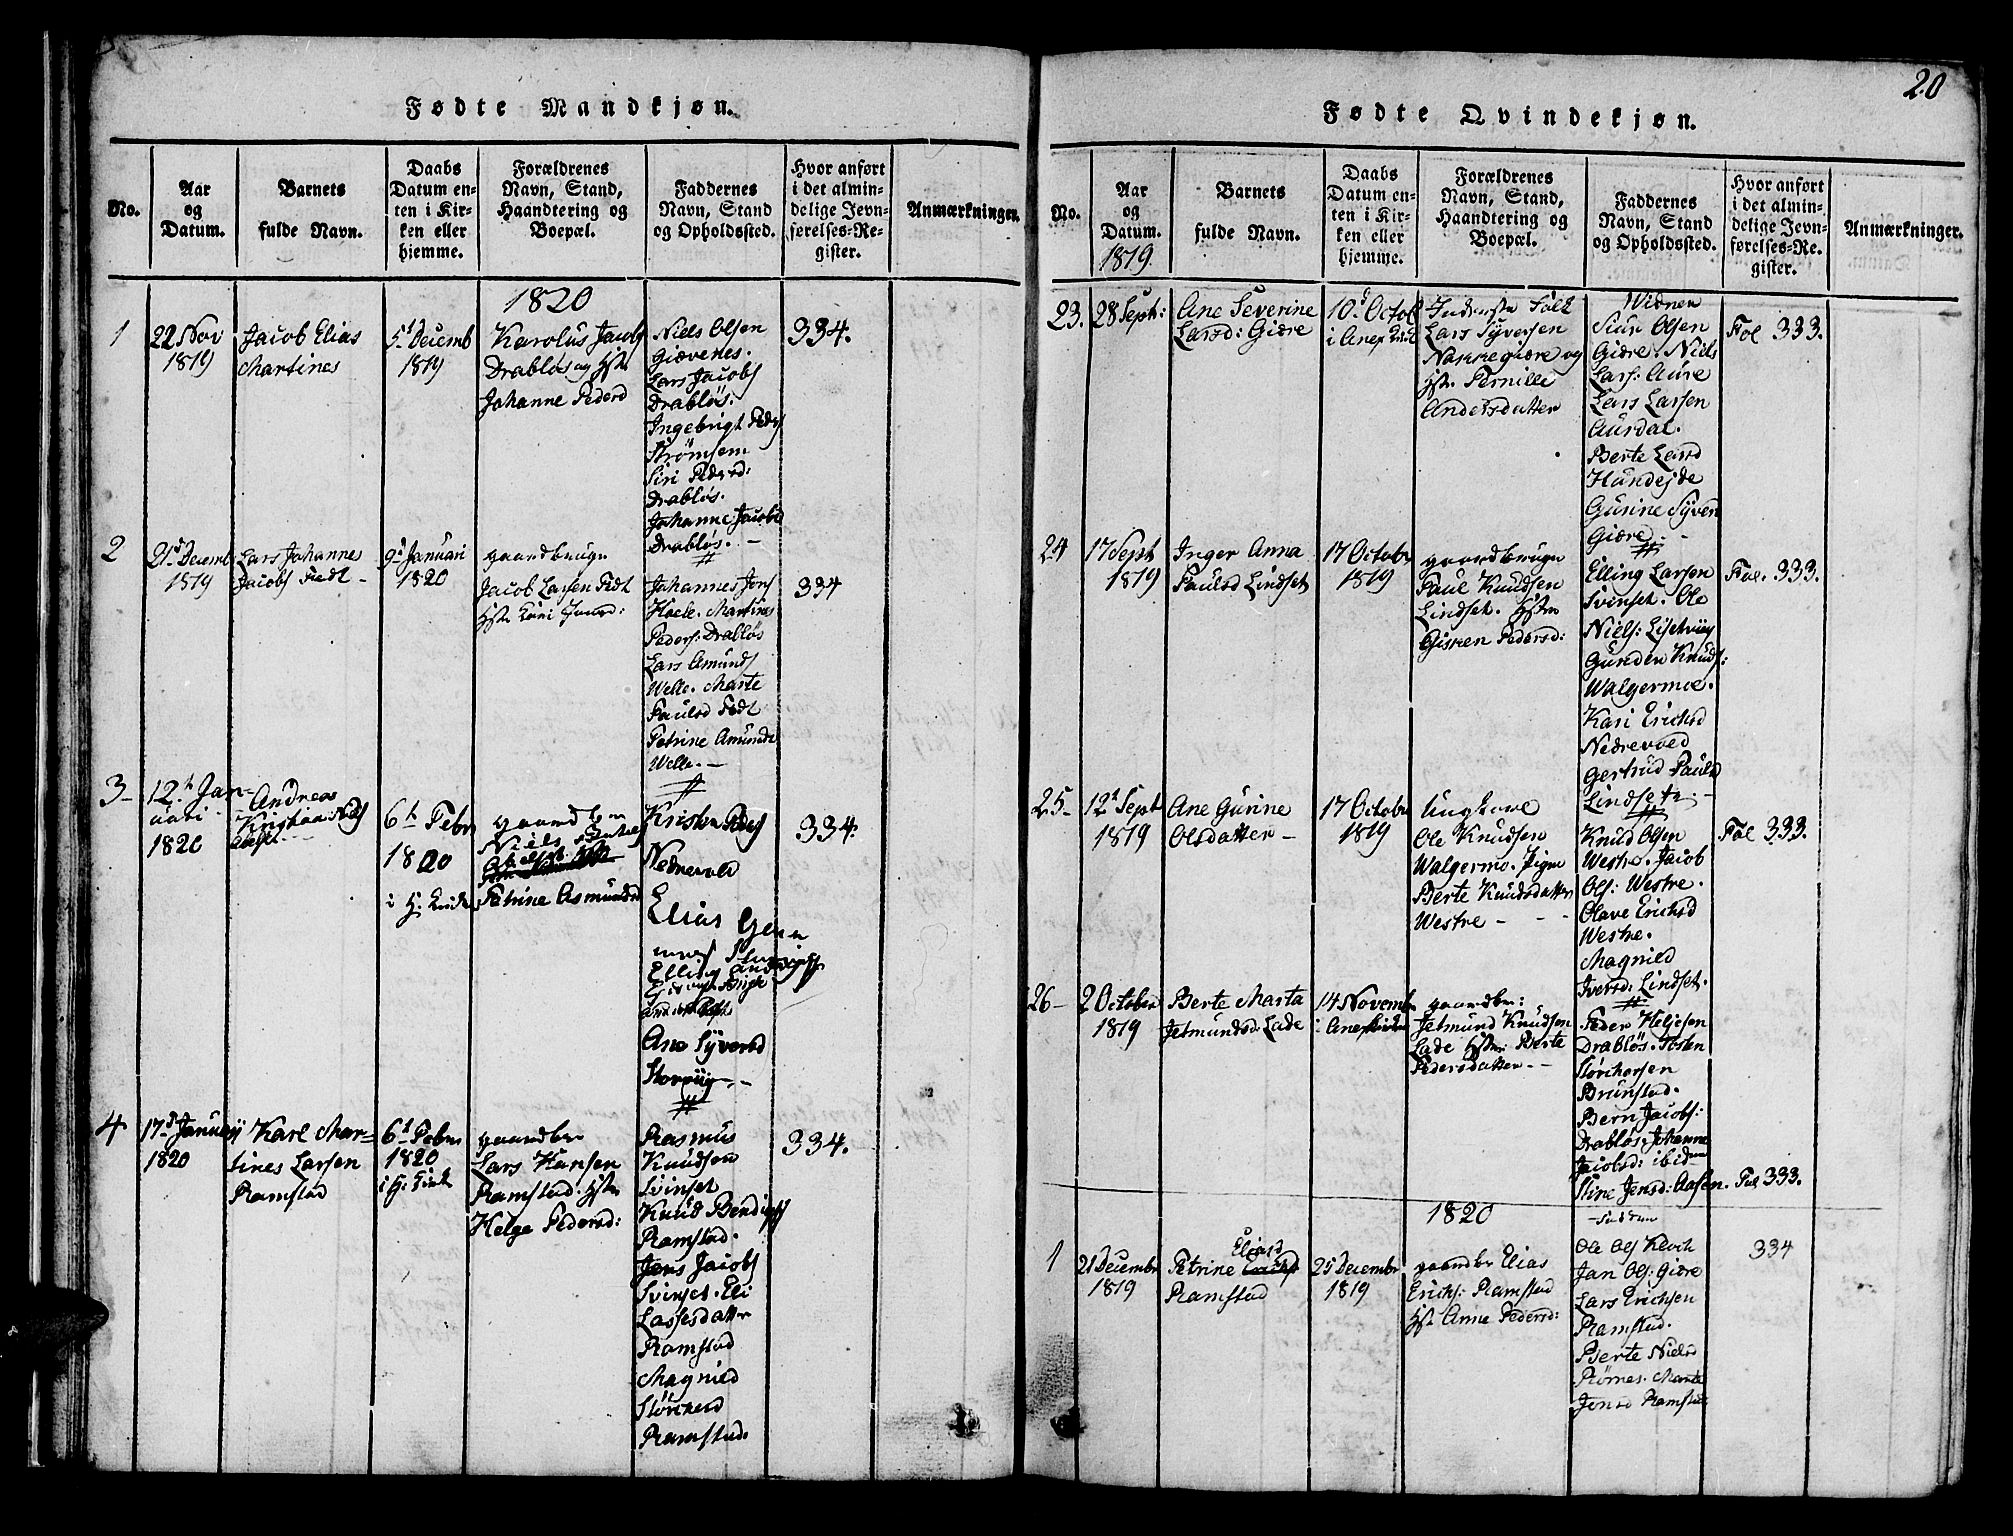 Fødte Mandkjøn.
No.
Aar
og
Datum.
Barnets
fulde Navn.
Daabs
Datum en-
ten i Kir-
ken eller
hjemme.
Forældrenes
Navn, Stand,
Haandtering og
Boepæl.
Faddernes
Navn, Stand
og Opholdssted.
Hvor anført
i det almin-
delige Jevn-
førelses-Re-
gister.
Anmærkninger.
1820
1
22 Nov
1819
Jacob Elias
Martines
5t Decemb
1819
Karolus Jacobs
Drabløs og Hst:
Johanne Pedersd
Niels Olsen
Giævenes.
Lars Jacobs
Drabløs.
Ingebrigt Peders
Strömsem
Siri Pedersd:
Drabløs.
Johanne Jacobsd
Drabløs. -
334.
2
21d Decemb
1819
Lars Johannes
Jacobs Fedt -
9d Januari
1820
gaardbruger
Jacob Larsen Fedt
Hst: Kari
Johannes Jens
Hoele. Martines
Peders: Drabløs
Lars Amunds
Welle. Marte
Paulsd Fedt
Petrine Amunds
Welle. -
334
3-
12t Jan-
uari
1820
Andreas
Kristian Niels
6t Febr
1820
i H: Kirke
gaardbr
Niels
Petrine Asmundsd
Kristen Peders
Nedrevold
Elias
Elling
Ane Syversd
Storviig. -
334.
4
17d Januarij
1820
Karl Mar-
tines Larsen
Ramstad
6t Febr
1820
i H: Kirk
gaardbr
Lars Hansen
Ramstad. Hst:
Helge Pedersd:
Rasmus
Knudsen
Svinset
Knud Bendigs
Ramstad.
Jens Jacobs
Svinset. Eli
Lassesdatter
Ramstad
Magnild
Störchersd
Ramstad.
334.
20
Fødte Qvindekjøn.
No.
Aar
og
Datum.
1819
Barnets
fulde Navn.
Daabs
Datum en-
ten i Kir-
ken eller
hjemme.
Forældrenes
Navn, Stand,
Haandtering og
Boepæl.
Faddernes
Navn, Stand
og Opholdssted.
Hvor anført
i det almin-
delige Jevn-
førelses-Re-
gister.
Anmærkninger.
23.
28 Sept:
Ane Severine
Larsd: Giære
10d Octob
i Anex Kirk
Inderste Folk
Lars Syversen
Nakkegiære og
Hst: Pernille
Andersdatter
Widner
Siur Olsen
Giære. Niels
Lars: Aure
Lars Larsen
Aursdal.
Berte Larsd
Hundejde
Gurine Syvers
Giære. -
Fol 333.
24
17 Sept
1819
Inger Anna
Paulsd Lindset
17 Octobr
1819
gaardbruger
Paul Knudsen
Lindset. Hstr:
Gisken Pedersd:
Elling Larsen
Svinset. Ole
Niels: Listviig
Gunder Knuds:
Walgermoe.
Kari Erichsd
Nedrevold
Gertrud Paulsd
Lindset. -
Fol. 333.
25-
12t Sept
1819
Ane Gurine
Olsdatter -
17 Octobr
1819
Ungkare
Ole Knudsen
Walgermo. Pigen
Berte Knudsdatter
Westre - - -
Knud Olsen
Westre. Jacob
Ols: Westre.
Olave Erichsd
Westre.
Magnild
Iversd: Lindset.
Fol 333.
26-
2 October
1819
Berte Marta
Jetmundsd. Lade
14 Novemb
i Anexkirken
gaardbr:
Jetmund Knudsen
Lade Hstr: Berte
Pedersdatter - -
Peder Heljesen
Drabløs. Tosten
Störchorsen
Brunstad.
Bern Jacobs:
Drabløs. Johanne
Jacobsd: ibidem
Stine Jensd: Aasen.
Fol 333.
1820
1
21 Decembr
1819
Petrine Eliasd
Ramstad
25 Decembr
1819
gaardbr Elias
Erichs: Ramstad
Hst: Anne Pedersd:
Faddere
Ole Ols Klock
Jan Ols: Giære
Lars Erichsen
Ramstad.
Berte Nielsd
Rørnes. Marte
Jensd Ramstad
334